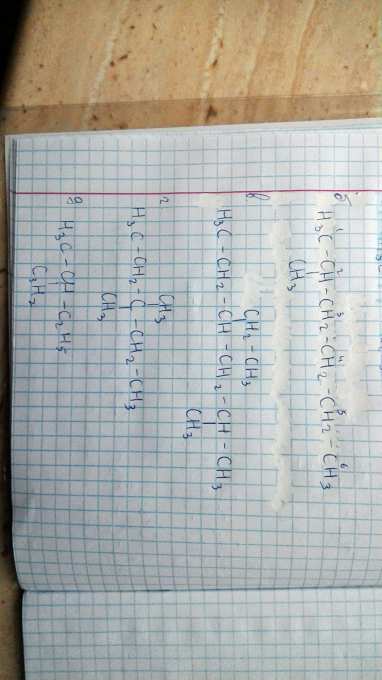 б 1 2 3 4 5 6
H3C – CH – CH2 – CH2 – CH2 – CH3
CH3
в CH2 – CH3
H3C – CH2 – CH – CH2 – CH – CH3
CH3
г CH3
H3C – CH2 – C – CH2 – CH3
CH3
д
H3C – CH – C2H5
C3H7